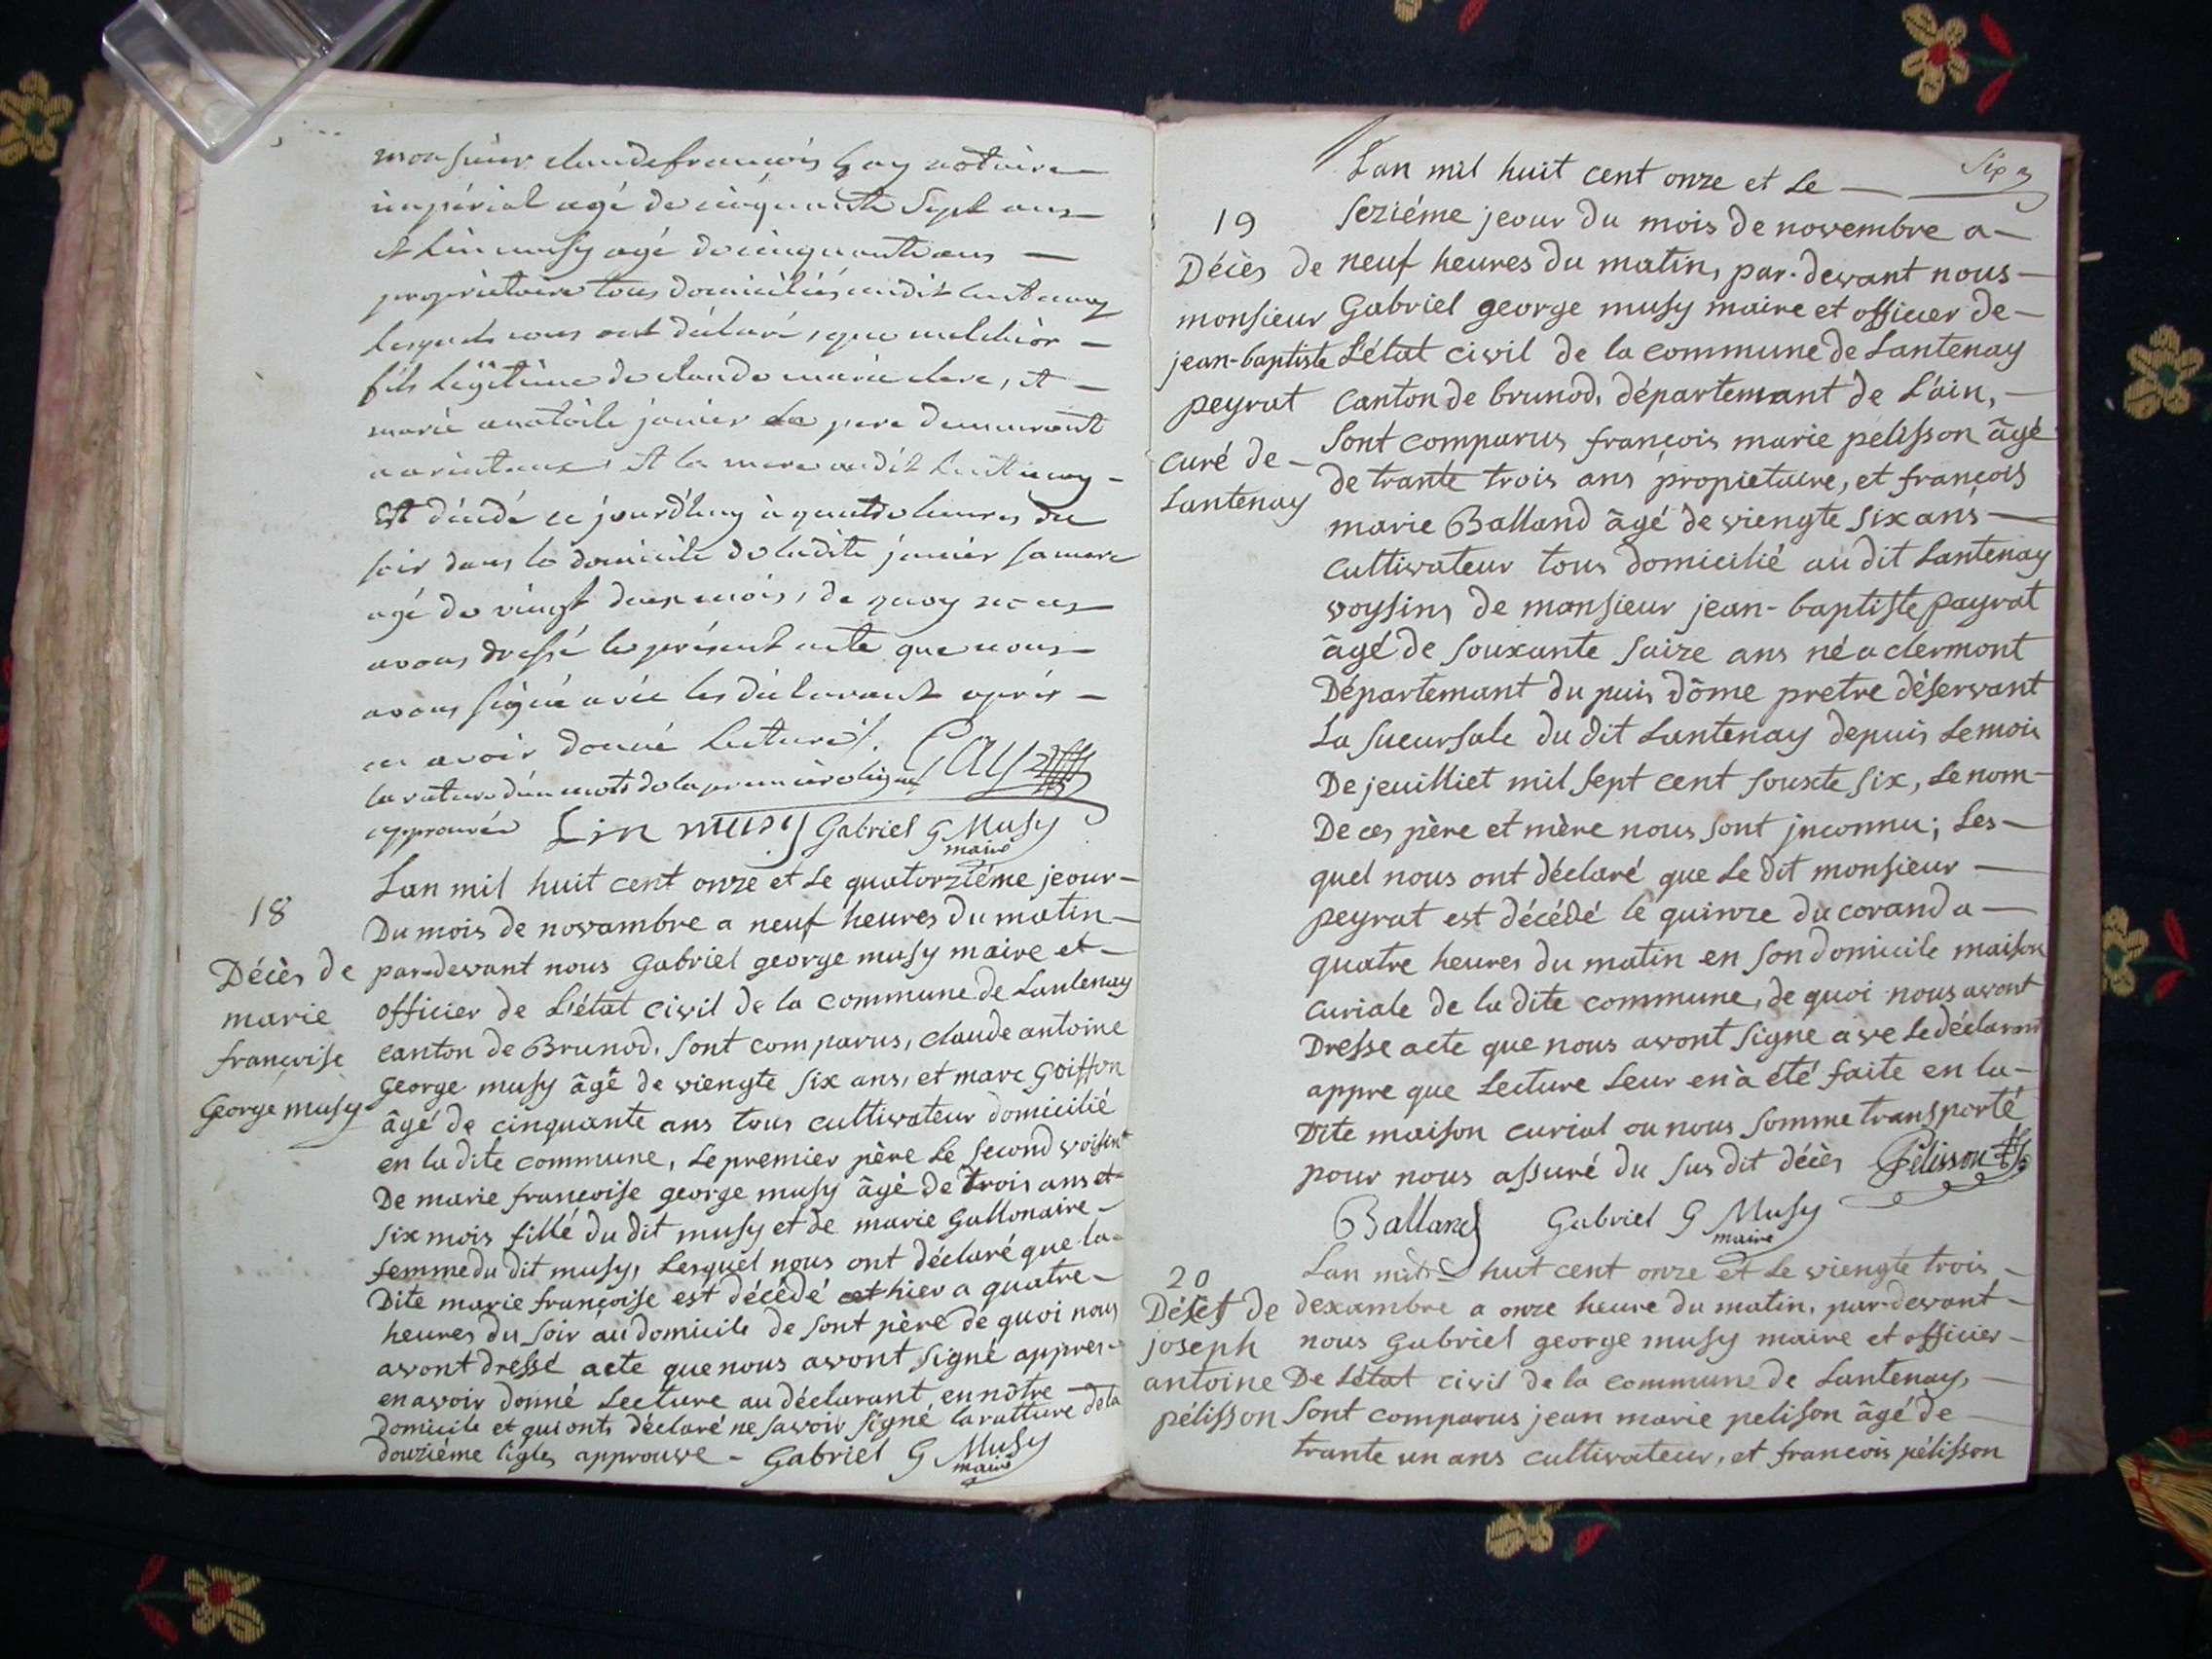 monsieur claude françois Gay notaire
impérial agé de cinquante Sept ans
et Lin musy agé de cinquante ans
propriétaire tous domiciliés audit Lantenay
Lesquels nous ont déclaré, que melchior
fils légitime de claude marie clerc, et
marie anatoile janier le pere demeurant
a et la mere audit Lantenay
Est décédé ce jourd'huy à quatre heures du
soir dans le domicile de ladite janier sa mere
agé de vingt deux mois, de quoy nous
avons dressé le présent acte que nous
avons signé avec les déclarant après
en avoir donné lecture. Gay
la rature d'un mots de la première ligne
approuvée Lin musy Gabriel G Musy
maire
18
Décès de
marie
françoise
George musy
Lan mil huit cent onze et Le quatorziéme jeour
Du mois de novambre a neuf heures du matin
par-devant nous Gabriel george musy maire et
officier de L'état civil de la commune de Lantenay
canton de Brunod, sont comparus, claude antoine
George musy âgé de viengte six ans, et marc Goiffon
âgé de cinquante ans tous cultivateur domicilié
en la dite commune, Le premier père Le second voisint
De marie françoise george musy âgé de trois ans et
six mois fille du dit musy et de marie Gallonaire
femme du dit musy, Lesquel nous ont déclaré que la
Dite marie françoise est décédé hier a quatre
heures du soir au domicile de sont père de quoi nous
avont dressé acte que nous avont signé appres
en avoir donné Lecture au déclarant en nôtre
domicile et qui onts déclaré ne savoir signé, la ratture de la
douziéme ligle, approuve - Gabriel G Musy
maire
Six
19
Décès de
monsieur
jean-baptiste
peyrat
curé de
Lantenay
Lan mil huit cent onze et Le
seziéme jeour du mois de novembre a
neuf heures du matin, par-devant nous
Gabriel george musy maire et officier de
L'état civil de la commune de Lantenay
canton de brunod, départemant de L'ain,
sont comparus françois marie pelisson âgé
de trante trois ans propietaire, et françois
marie Balland âgé de viengte six ans
cultivateur tous domicilié au dit Lantenay
voysins de monsieur jean-baptiste payrat
âgé de souxante saize ans né a clermont
Départemant du puis dôme pretre déservant
La sucursale du dit Lantenay depuis Le mois
De jeuilliet mil sept cent souxte six, Le nom
De ces père et mère nous sont jnconnu; Les
quel nous ont déclaré que Le dit monsieur
peyrat est décédé le quinze du corand a
quatre heures du matin en son domicile maison
curiale de la dite commune, de quoi nous avont
Dresse acte que nous avont signe ave Le déclarant
appre que Lecture Leur en à été faite en la
Dite maison curial ou nous somme transporté
pour nous assuré du sus dit décès Pélisson
Balland Gabriel G Musy
maire
20
Déset de
joseph
antoine
pélisson
Lan mil hut cent onze et Le viengte trois
dexambre a onze heure du matin, par-devant
nous Gabriel george musy maire et officier
De L'état civil de la commune de Lantenay,
sont comparus jean marie pelison âgé de
trante un ans cultivateur, et francois pélisson